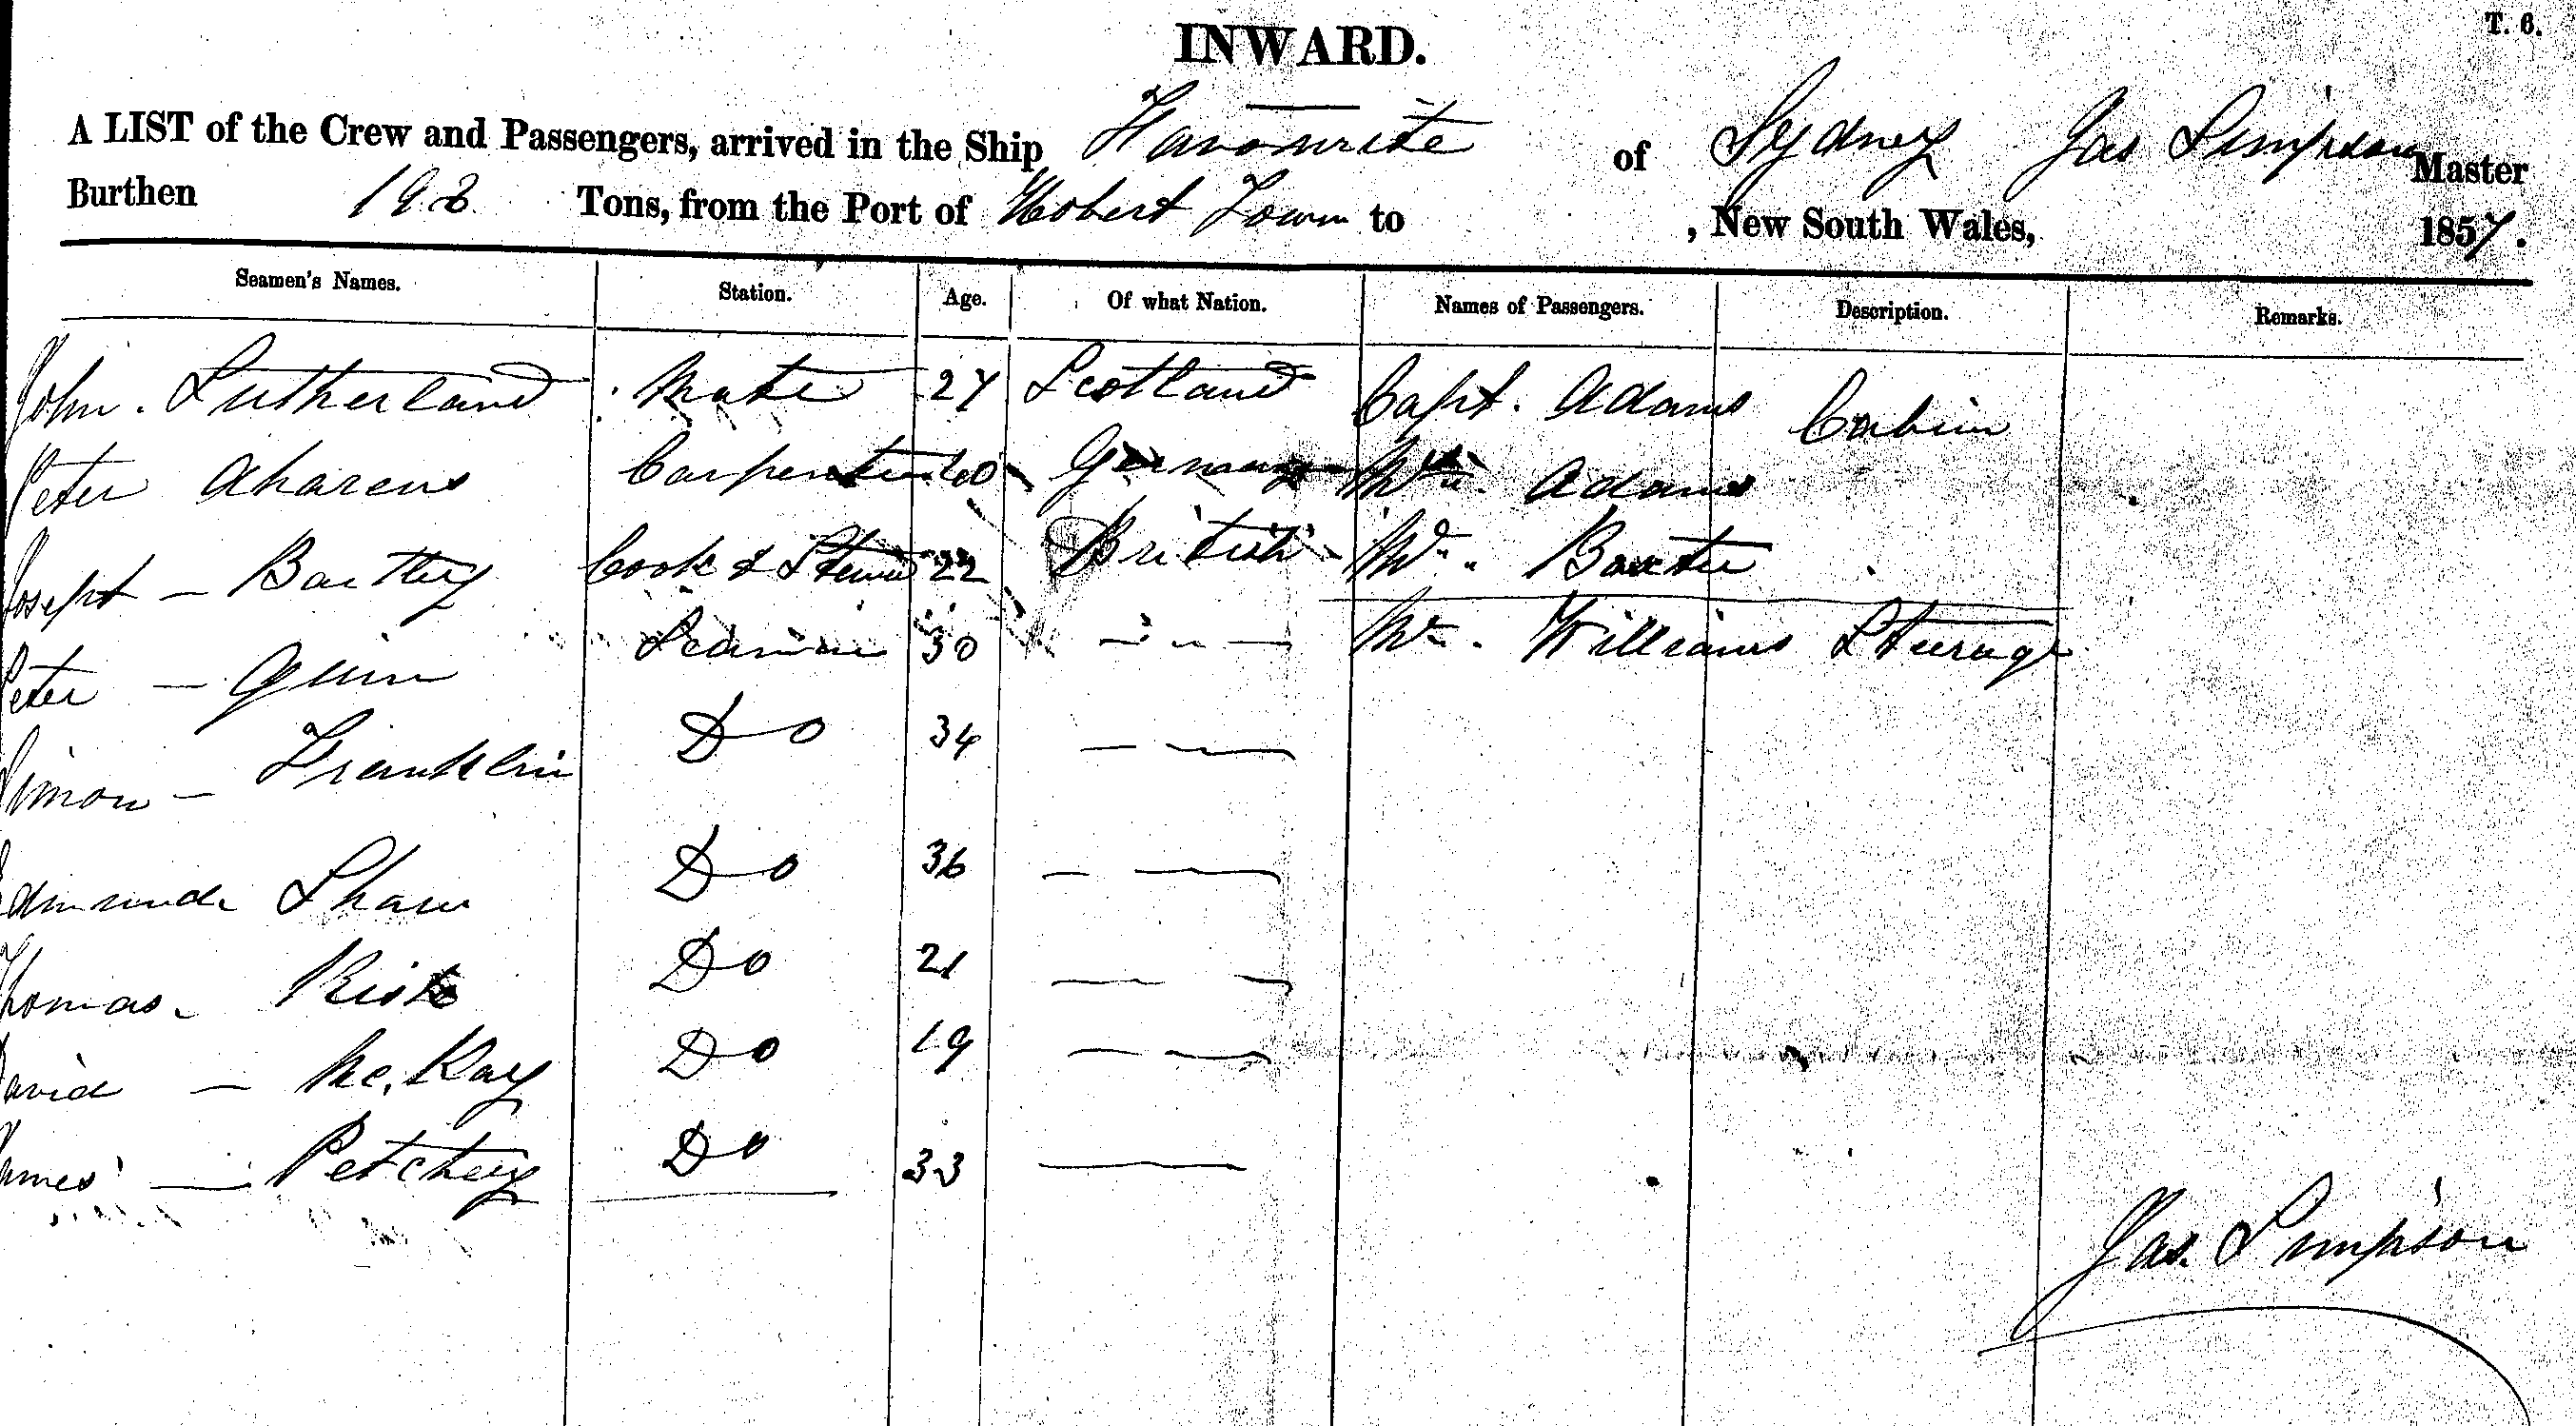 INWARD.
T. 6.
A LIST of the Crew and Passengers, arrived in the Ship Favourite of Sydney Jas Simpson Master
Burthen 198 Tons, from the Port of Hobert Town to , New South Wales, 1857.
Seamen's Names. Station. Age. Of what Nation. Names of Passengers. Description. Remarks.
John. Sutherland Mate 27 Scotland Capt. Adams Cabin
Peter Aharens Carpenter Germany Adams
Joseph - Barthey Cook & Steward 22 British Mr. Baxter
Peter - Quin Seaman 30 - " - Mr. Williams Steerage
Simon - Franklin Do 34 - -
Edmund Shaw Do 36 - -
Thomas Do 21 - -
David - McKay Do 19 - -
James - Petchey Do 33 -
Jas. Simpson